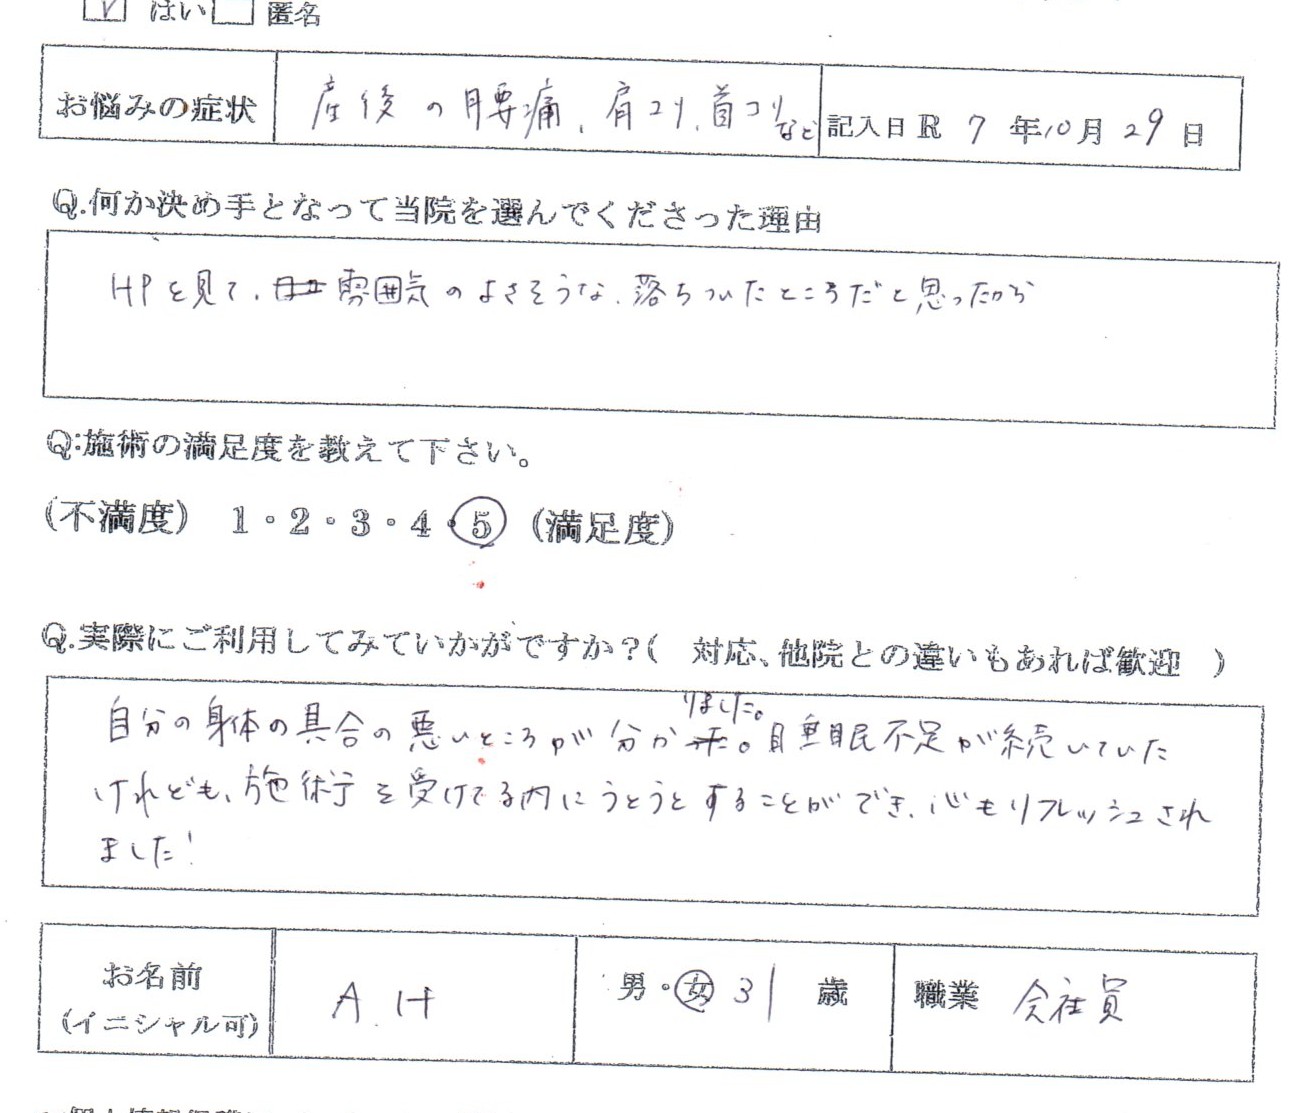 はい 匿名
お悩みの症状 産後の腰痛、肩コリ、首コリなど 記入日 R 7 年 10 月 29 日
Q.何か決め手となって当院を選んでくださった理由
HPを見て、雰囲気のよさそうな、落ちついたところだと思ったから
Q:施術の満足度を教えて下さい。
(不満度) 1・2・3・4・5 (満足度)
Q.実際にご利用してみていかがですか?( 対応、他院との違いもあれば歓迎 )
自分の身体の具合の悪いところが分かりました。睡眠不足が続いていた
けれども、施術を受けてる内にうとうとすることができ、心もリフレッシュされ
ました!
お名前 (イニシャル可) A.H 男・女 31 歳 職業 会社員